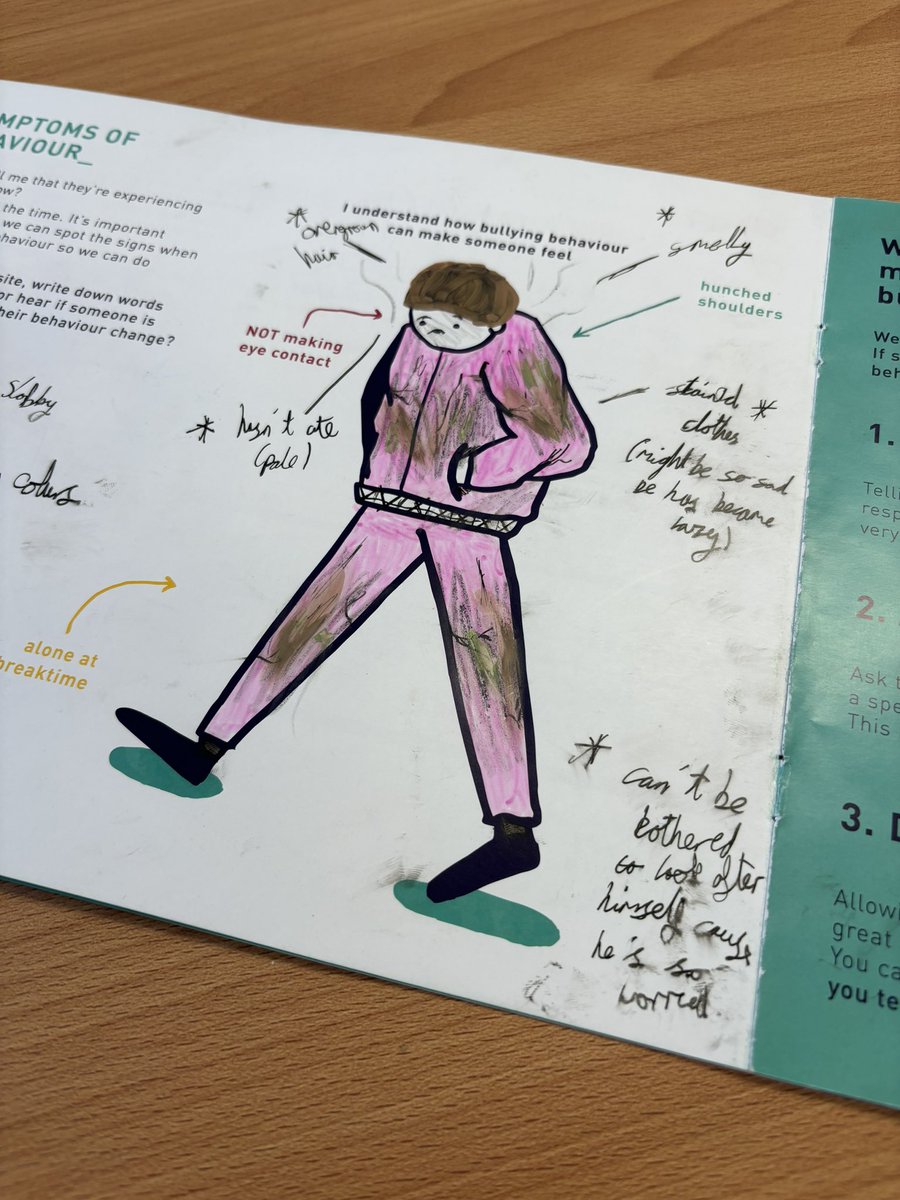 MPTOMS OF
AVIOUR_
ll me that they're experiencing
ow?
the time. It's important
we can spot the signs when
ehaviour so we can do
site, write down words
or hear if someone is
heir behaviour change?
Slobby
others
alone at
breaktime
I understand how bullying behaviour
can make someone feel
* overgrown
hair
NOT making
eye contact
* hasn't ate
(pale)
*
smelly
hunched
shoulders
stained *
clothes
(might be so sad
he has become
lazy)
* can't be
bothered
to look after
himself cause
he's so
worried.
W
m
bu
We
If s
beh
1.
Telli
resp
very
2.
Ask t
a spe
This
3. D
Allowi
great
You ca
you te